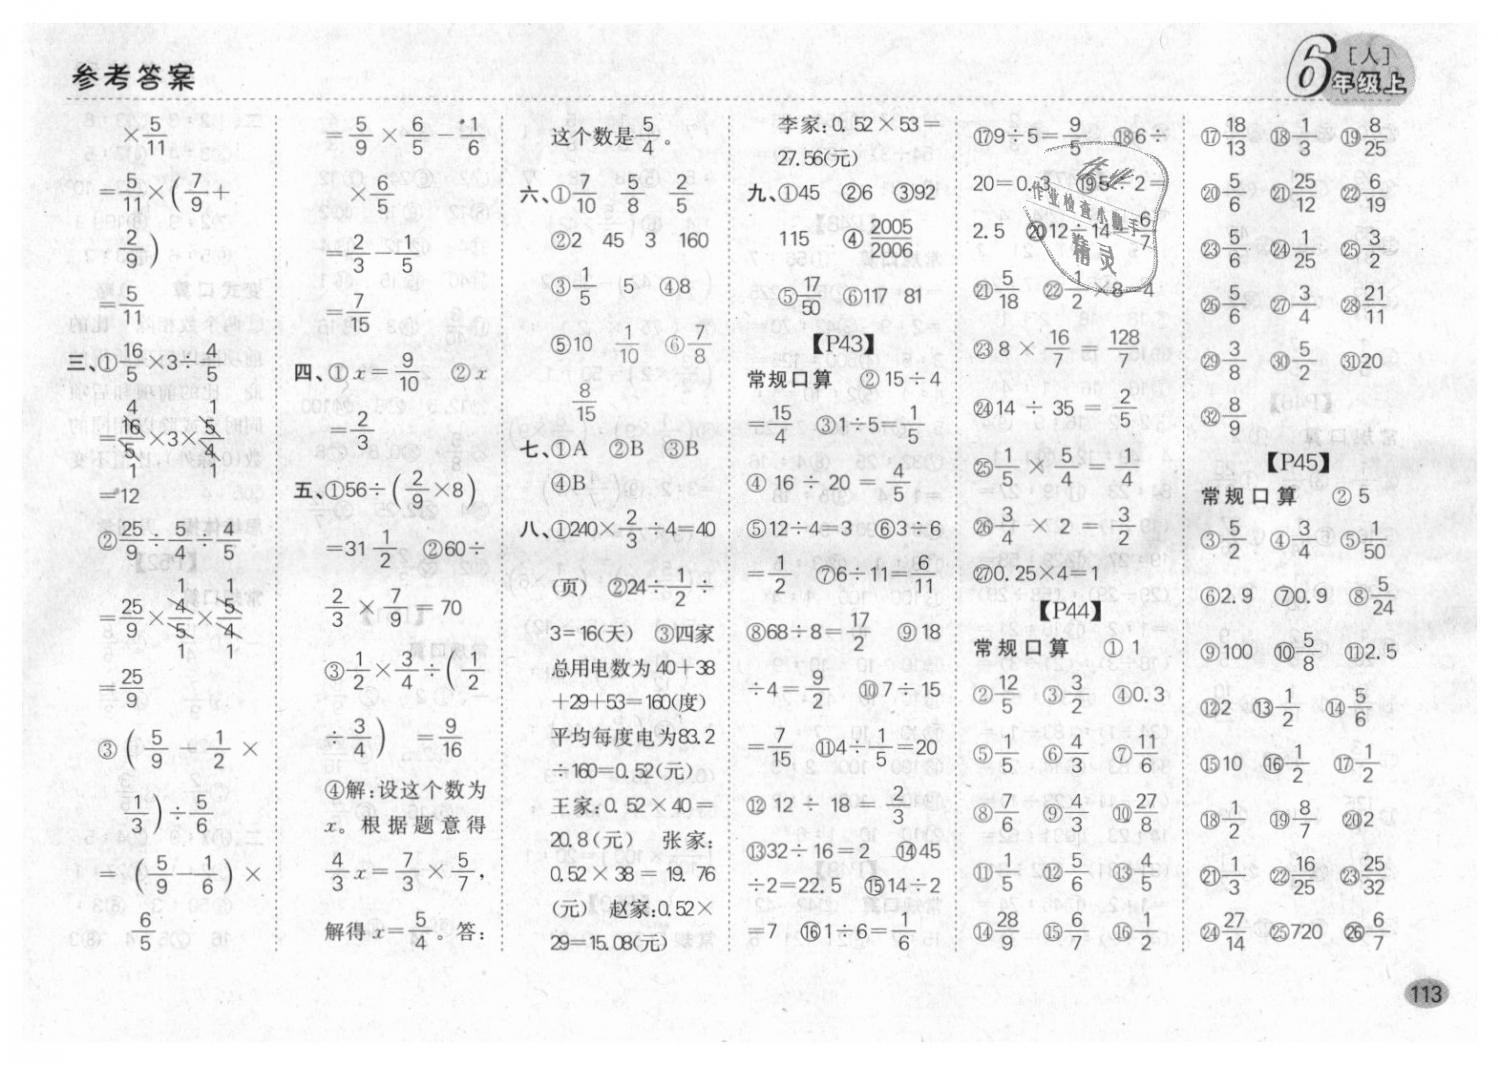 参考答案
6年级上
[人]
×5/11
=5/11×(7/9+
2/9)
=5/11
三、①16/5×3÷4/5
=16/5×3×5/4
=12
②25/9÷5/4÷4/5
=25/9×4/5×5/4
=25/9
③(5/9-1/2×
1/3)÷5/6
=(5/9-1/6)×
6/5
=5/9×6/5-1/6
×6/5
=2/3-1/5
=7/15
四、①x=9/10 ②x
=2/3
五、①56÷(2/9×8)
=31 1/2 ②60÷
2/3×7/9=70
③1/2×3/4÷(1/2
÷3/4) =9/16
④解:设这个数为
x。根据题意得
4/3x=7/3×5/7,
解得x=5/4。答:
这个数是5/4。
六、①7/10 5/8 2/5
②2 45 3 160
③1/5 5 ④8
⑤10 1/10 ⑥7/8
8/15
七、①A ②B ③B
④B
八、①240×2/3÷4=40
(页) ②24÷1/2÷
3=16(天) ③四家
总用电数为40+38
+29+53=160(度)
平均每度电为83.2
÷160=0.52(元)
王家:0.52×40=
20.8(元) 张家:
0.52×38=19.76
(元) 赵家:0.52×
29=15.08(元)
李家:0.52×53=
27.56(元)
九、①45 ②6 ③92
115 ④2005/2006
⑤17/50 ⑥117 81
【P43】
常规口算 ②15÷4
=15/4 ③1÷5=1/5
④16÷20=4/5
⑤12÷4=3 ⑥3÷6
=1/2 ⑦6÷11=6/11
⑧68÷8=17/2 ⑨18
÷4=9/2 ⑩7÷15
=7/15 ⑪4÷1/5=20
⑫12÷18=2/3
⑬32÷16=2 ⑭45
÷2=22.5 ⑮14÷2
=7 ⑯1÷6=1/6
⑰9÷5=9/5 ⑱6÷
20=0.3 ⑲5÷2=
2.5 ⑳12÷14=6/7
㉑5/18 ㉒1/2×8=4
㉓8×16/7=128/7
㉔14÷35=2/5
㉕1/5×5/4=1/4
㉖3/4×2=3/2
㉗0.25×4=1
【P44】
常规口算 ①1
②12/5 ③3/2 ④0.3
⑤1/5 ⑥4/6 ⑦11/6
⑧7/6 ⑨4/3 ⑩27/8
⑪1/5 ⑫5/6 ⑬4/5
⑭28/9 ⑮6/7 ⑯1/2
⑰18/13 ⑱1/3 ⑲8/25
⑳5/6 ㉑25/12 ㉒6/19
㉓5/6 ㉔1/25 ㉕3/2
㉖6/7 ㉗3/4 ㉘21/11
㉙3/8 ㉚5/2 ㉛20
㉜8/9
【P45】
常规口算 ②5
③5/2 ④3/4 ⑤1/50
⑥2.9 ⑦0.9 ⑧5/24
⑨100 ⑩5/8 ⑪2.5
⑫2 ⑬1/2 ⑭5/6
⑮10 ⑯1/2 ⑰1/2
⑱1/2 ⑲8/7 ⑳2
㉑1/3 ㉒16/25 ㉓25/32
㉔27/14 ㉕720 ㉖6/7
作业检查小助手
精灵
113